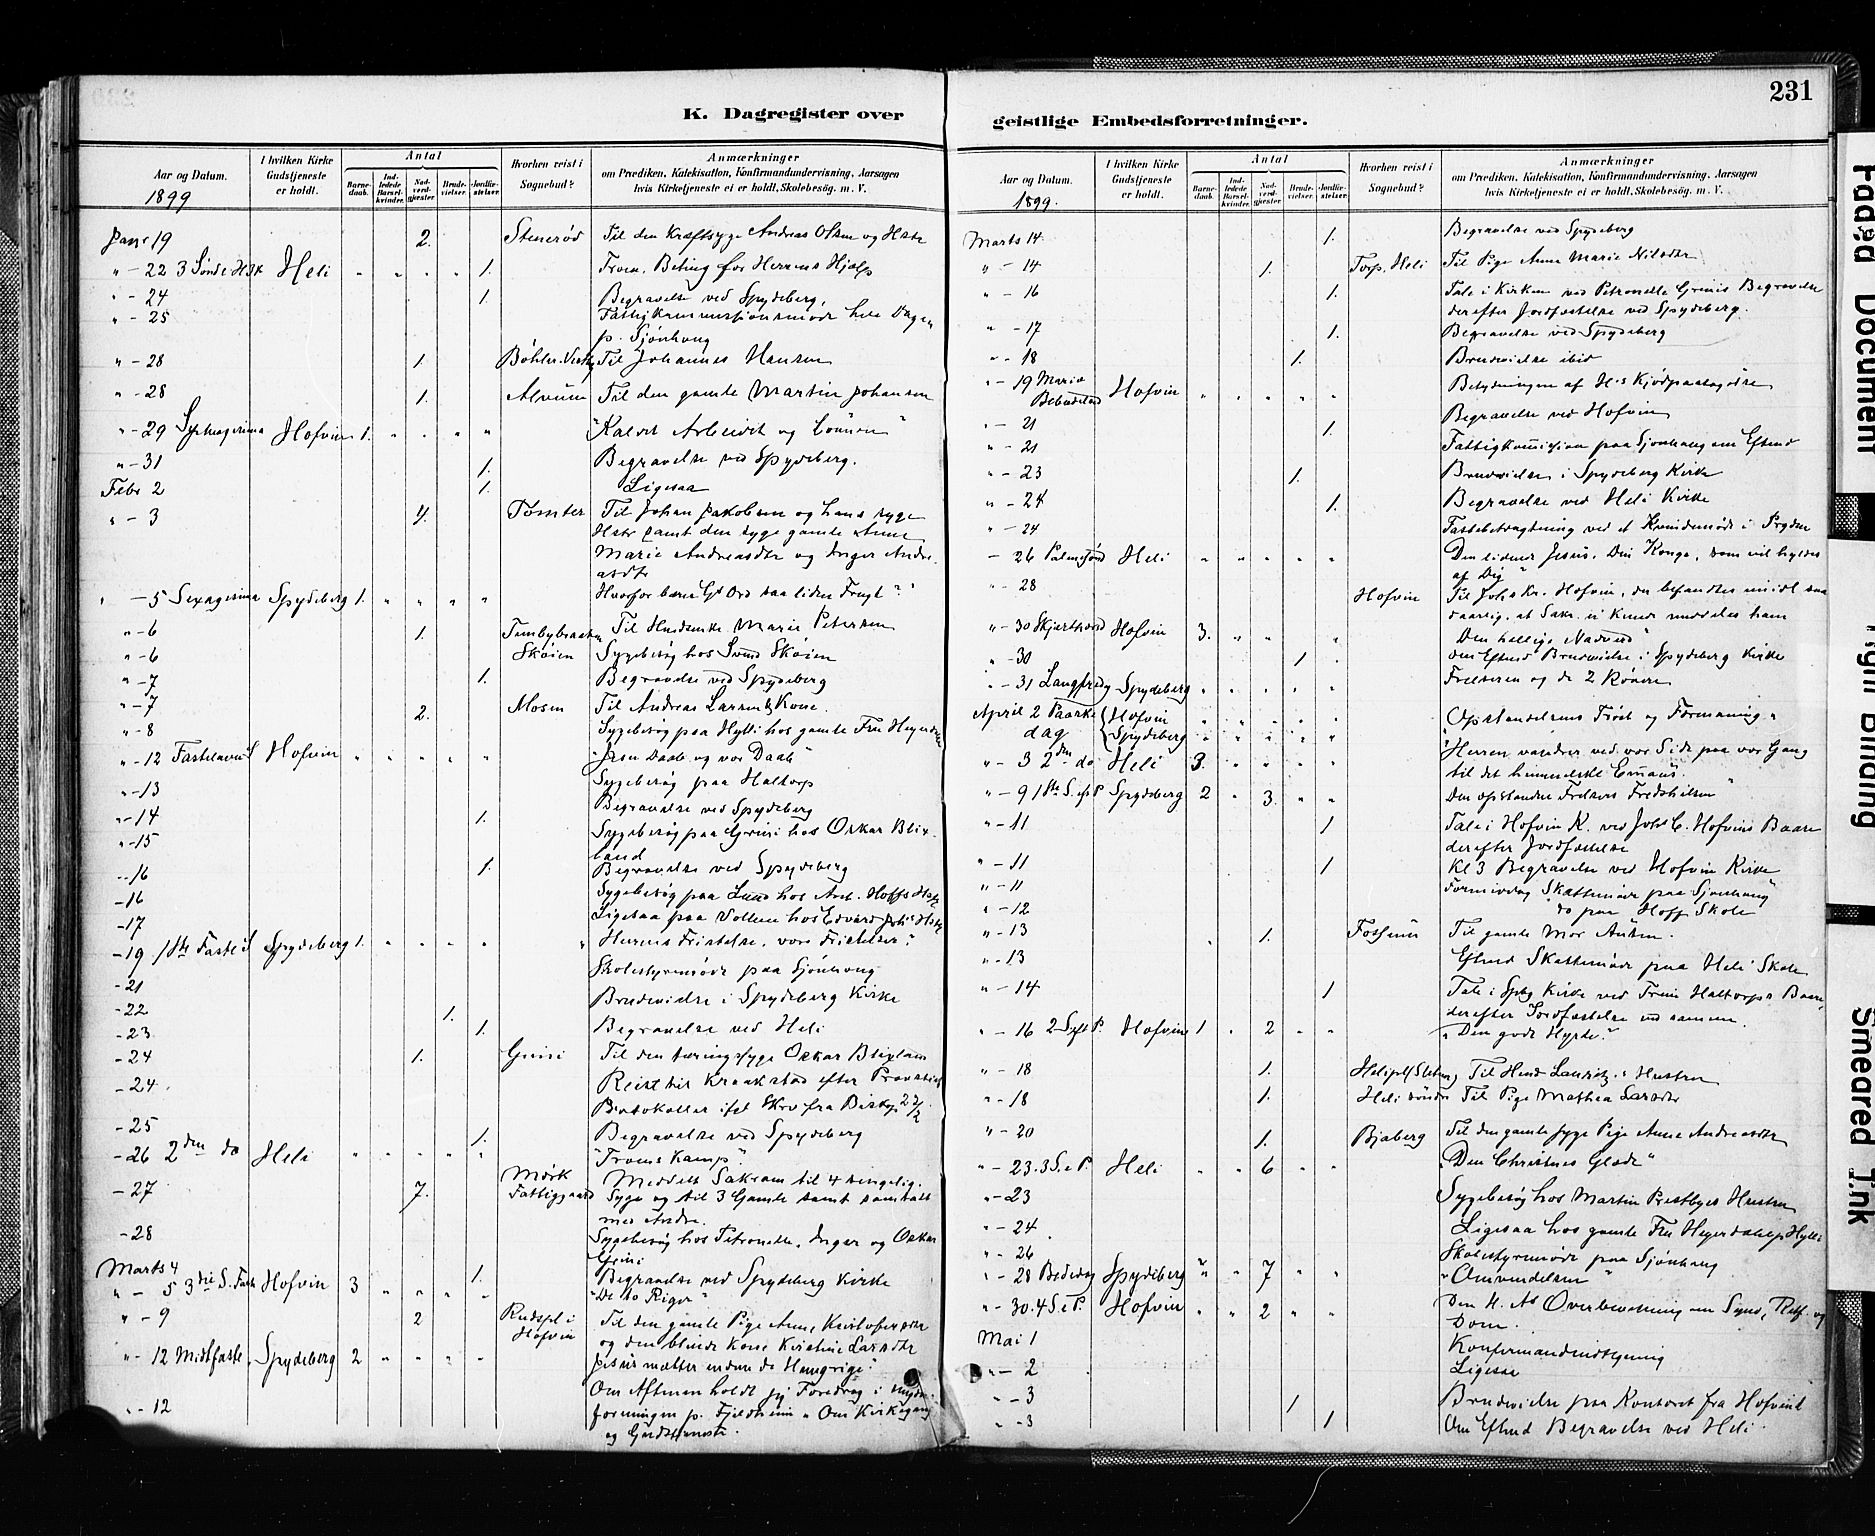 231
K. Dagregister over
geistlige Embedsforretninger.
Aar og Datum.
I hvilken Kirke Gudstjeneste er holdt.
Antal
Barnedaab.
Indledede Barselkvinder.
Nadverdgjester
Brudevielser.
Jordfæstelser.
Hvorhen reist i Sognebud?
Anmærkninger
om Prædiken, Katekisation, Konfirmandundervisning, Aarsagen
hvis Kirketjeneste ei er holdt, Skolebesög. m. V.
1899
Janr 19 2. Stenerød Til den Kræftsyge Andreas Olsen og Hstr
" - 22 3 Heli " " " " 1. Troen. Beting for Herrens Hjælp
" - 24 1. Begravelse ved Spydeberg.
" - 25 Fattigkommissionsmøde hele Dagen
p. Sjönhaug
" - 28 1. Til Johannes Hansen
" - 28 1. Til den gamle Martin Johansen
" - 29 Hofvin 1. " " " " "Kaldet Arbeidet og Lönnen"
" - 31 1. Begravelse ved Spydeberg.
Febr 2 1. Ligesaa
" - 3 4. Tomter Til Johan Jakobsen og hans syge
Hstr samt den syge gamle Anne
Marie Andreasdtr og Inger Andre
asdtr
" - 5 Sexagesima Spydeberg 1. " " " " Hvorfor bærer Gs Ord saa liden Frugt"
" - 6 1. Til Marie Petersen
" - 6 Skøien Sygebesög hos Svend Skøien
" - 7 1. Begravelse ved Spydeberg
" - 7 2. Mosen Til Andreas Larsen & Kone.
" - 8 Sygebesög paa Hylli hos gamle Fru
" - 12 Hofvin " " " " " Daab og vor Daab"
" - 13 Sygebesög paa Haltorp
" - 14 1. Begravelse ved Spydeberg
" - 15 Sygebesög paa Grini hos Oskar Blix
land
" - 16 1. Begravelse ved Spydeberg
- 16 Sygebesög paa Lund hos
- 17 Ligesaa paa Vollene hos Edvard
- 19 1ste Faste S Spydeberg 1. " " " " "Herrens Fristelse, vore Fristelser".
- 21 Skolestyremöde paa Sjönhaug
- 22 1. Brudevielse i Spydeberg Kirke
- 23 1. Begravelse ved Heli
- 24 1. Grini Til den tæringssyge Oskar Blixland
- 24 Reist til Kraakstad efter
fra Biskop
- 25 1. Begravelse ved Spydeberg
- 26 2den do Heli " " " " " "Troens Kamp".
- 27 7. Mørk Fattiggaard Meddelt Sakram til 4 sengelig.
Syge og til 3 Gamle samt samtalt
med Andre.
- 28 Sygebesög hos Petronelle, Inger og Oskar
Grini
Marts 4 1. Begravelse ved Spydeberg Kirke
" - 5 3die S. Fast Hofvin 3 " " " " "De to Riger"
" - 9 2 Rudspl i Hofvin Til den gamle Pige Anne Kristofersdtr
og den blinde Kone Kristine Larsdtr
" - 12 Midtfaste Spydeberg 2 " " " " Jesus mætter endnu de Hungrige".
" - 12 Om Aftenen holdt jeg Foredrag i
foreningen p. Fjeldheim "Om Kirkegang
og Gudstjeneste.
Aar og Datum.
I hvilken Kirke Gudstjeneste er holdt.
Antal
Barnedaab.
Indledede Barselkvinder.
Nadverdgjester
Brudevielser.
Jordfæstelser.
Hvorhen reist i Sognebud?
Anmærkninger
om Prædiken, Katekisation, Konfirmandundervisning, Aarsagen
hvis Kirketjeneste ei er holdt, Skolebesög. m. V.
1899.
Marts 14 1. Begravelse ved Spydeberg
" - 14 1. Torp, Heli Til Pige Anne Marie Nilsdtr
" - 16 1. Tale i Kirken ved Petronelle Grinis Begravelse
derefter Jordfæstelse ved Spydeberg.
" - 17 1. Begravelse ved Spydeberg
" - 18 1. Brudevielse ibid
" - 19 Maria Hofvin " " " " " Betydningen af H's Kjödpaatagelse
" - 21 1. Begravelse ved Hofvin
" - 21 Fattigkommission paa Sjönhaug om Eftmd
" - 23 1. Brudevielse i Spydeberg Kirke
" - 24 1. Begravelse ved Heli Kirke
" - 24 Fastebetragtning ved et Kvindemöde i
- 26 Palmesønd Heli " " " " " Den lidende Jesus. Din Konge, som vil hyldes
af Dig"
" - 28 Hofvin Til Johs Kr. Hofvin, der befandtes imidl saa
daarlig, at Sakr. ei kunde meddeles ham
" - 30 Hofvin 3. " " " "Den hellige Nadverd"
" - 30 1 Om Eftmd Brudevielse i Spydeberg Kirke
" - 31 Langfredg Spydeberg " " " " " Frelseren og de 2 Rövere
April 2 Paaske dag Hofvin " " " " " "Opstandelsens Tröst og Formaning"
Spydeberg " " " " "
" - 3 2den do Heli 3. " " " " "Herren vandrer ved vor Side paa vor Gang
til det himmelske Emaus.
" - 9 1ste S. e P Spydeberg 2 " 3. " " Den opstandne Frelsers Fredshilsen"
" - 11 1 Tale i Hofvin K. ved Johs C. Hofvins Baare
derefter Jordfæstelse
" - 11 1 Kl 3 Begravelse ved Hofvin Kirke
" - 11 Formiddag Skattemöde paa Sjönhaug
" - 12 do paa Hoff Skole
" - 13 1. Til gamle Mor
" - 13 Eftmd Skattemöde paa Heli Skole
" - 14 1 Tale i Spbg Kirke ved Haltorps Baare,
derefter Jordfæstelse ved samme.
" - 16 2 S. e P. Hofvin 1 " 2 " " "Den gode Hyrde".
" - 18 1. Til Hustru
" - 18 1. Heli søndre Til Pige Mathea Larsdtr
" - 20 1. Bjaberg Til den gamle syge Pige Anne Andreasdtr
" - 23. 3 S. e P. Heli " " 6 " " "Den Christnes Glæde"
" - 23 Sygebesög hos Martin Prestbyes Hustru
" - 24 Ligesaa hos gamle Fru Heyerdahl p Hylli
" - 26 Skolestyremöde paa Sjönhaug
" - 28 Bededag Spydeberg " " 7 " " "Omvendelsen"
" - 30. 4 S. e P. Hofvin " " 2 " " Den H. As Overbevisning om Synd, Retf. og
Dom.
Mai 1 Konfirmandindtegning
" - 2 Ligesaa
" - 3 1 Brudevielse paa Kontoret fra Hofvin
" - 3 1 Om Eftmd Begravelse ved Heli
Faded Document
Tight Binding
Smeared Ink